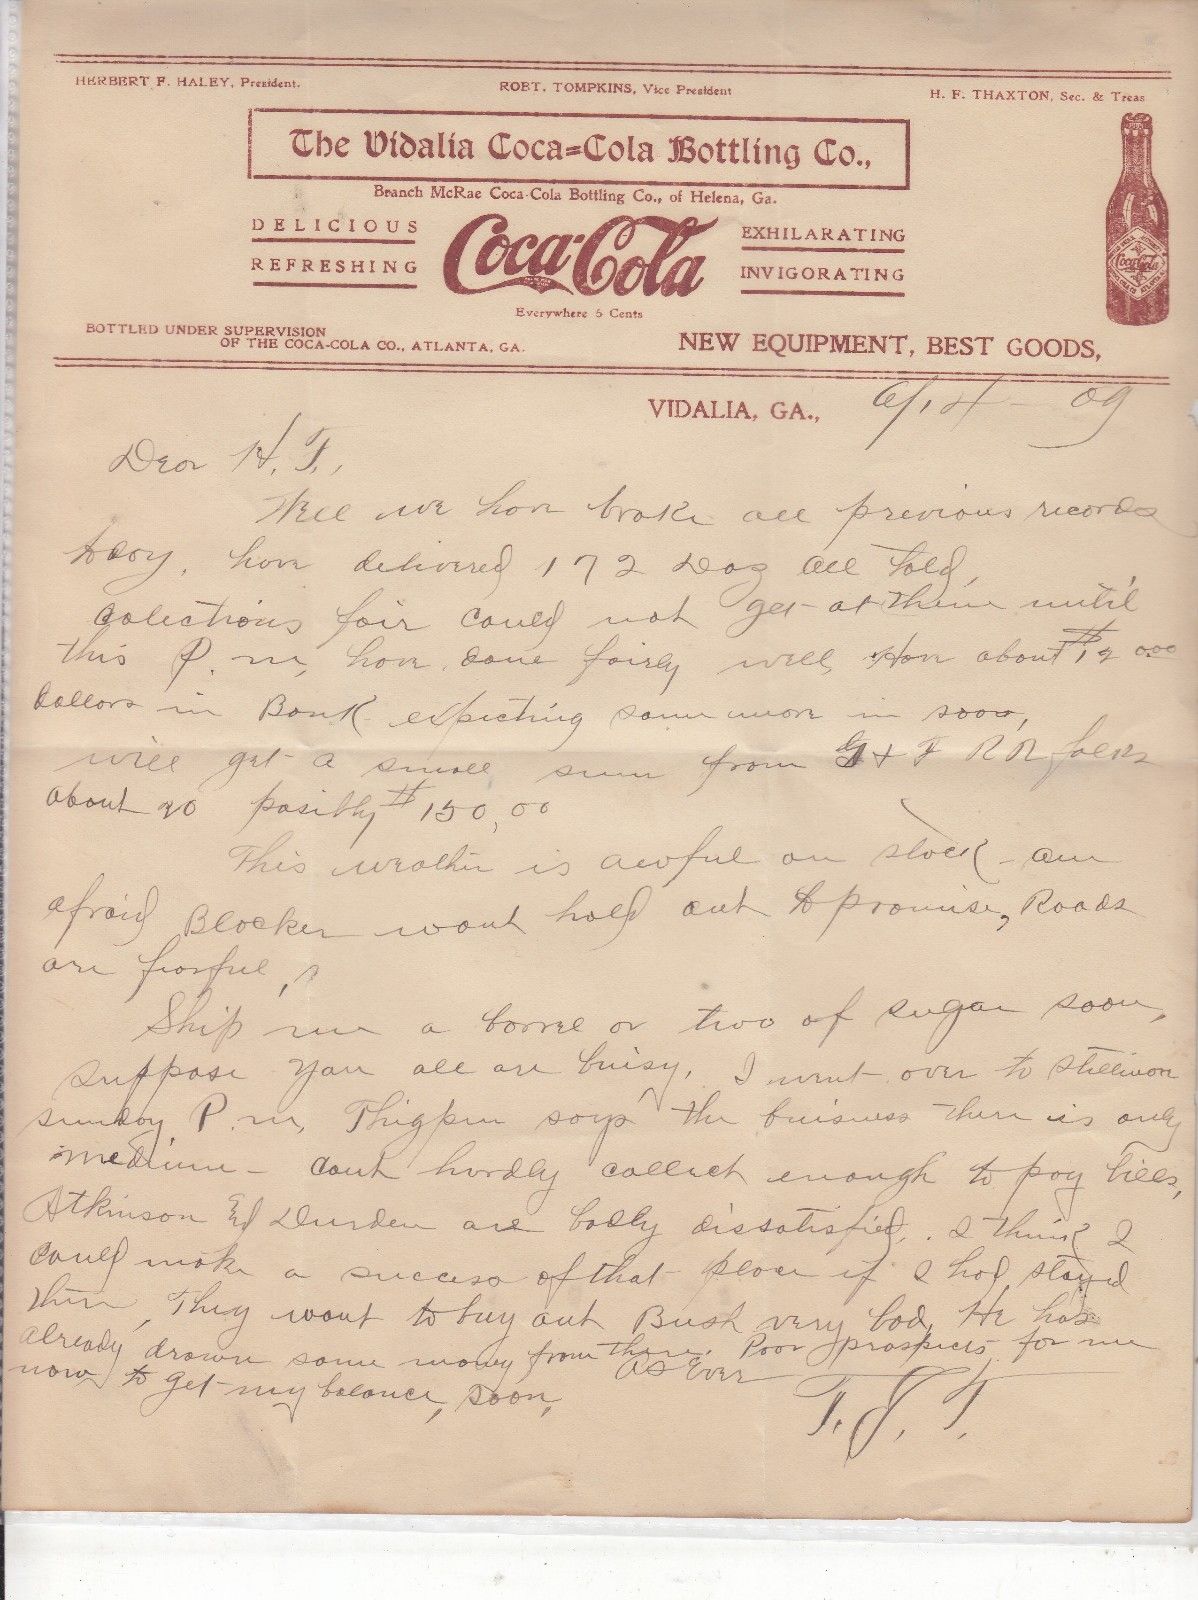 HERBERT F. HALEY, President.
ROBT. TOMPKINS, Vice President
H. F. THAXTON, Sec. & Treas
The Vidalia Coca=Cola Bottling Co.,
Branch McRae Coca-Cola Bottling Co., of Helena, Ga.
DELICIOUS
REFRESHING
Coca-Cola
EXHILARATING
INVIGORATING
Everywhere 5 Cents
BOTTLED UNDER SUPERVISION
OF THE COCA-COLA CO., ATLANTA, GA.
NEW EQUIPMENT, BEST GOODS,
Coca-Cola
VIDALIA, GA., 6/14 - 09
Dear H. T.,
Well we have broke all previous records
today, have delivered 172 Doz all told,
colections fair could not get at them until
this P.m, have done fairly well, Have about
dollars in Bank expecting some more in soon,
will get a small sum from G & F R R folks
about 20 posibly $150,00
This weather is awful on stock - am
afraid Blocker wont hold out to promise, Roads
are fearful,
Ship me a barrel or two of sugar soon,
suppose you all are buisy, I went over to Stillmore
sunday P.m, Thigpen says the buisness there is only
medium - cant hardly collect enough to pay bills,
Atkinson Ed Durden are badly dissatisfied, I think I
could make a success of that place if I had stayed
there, They want to buy out Bush very bad, He has
already drawn some money from there. Poor prospects for me
now to get my balance, soon,
As Ever
T. J. T.